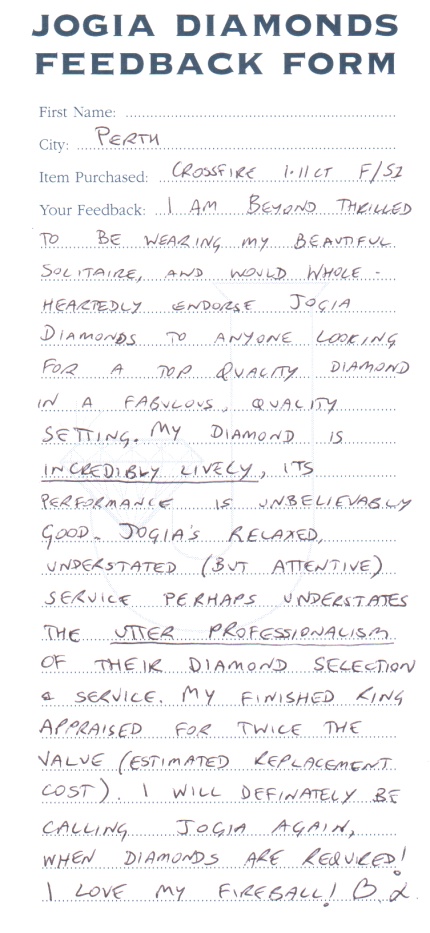 JOGIA DIAMONDS
FEEDBACK FORM
First Name:
City: PERTH
Item Purchased: CROSSFIRE 1.11CT F/SI
Your Feedback: I AM BEYOND THRILLED
TO BE WEARING MY BEAUTIFUL
SOLITAIRE, AND WOULD WHOLE-
HEARTEDLY ENDORSE JOGIA
DIAMONDS TO ANYONE LOOKING
FOR A TOP QUALITY DIAMOND
IN A FABULOUS, QUALITY
SETTING. MY DIAMOND IS
INCREDIBLY LIVELY, ITS
PERFORMANCE IS UNBELIEVABLY
GOOD. JOGIA'S RELAXED,
UNDERSTATED (BUT ATTENTIVE)
SERVICE PERHAPS UNDERSTATES
THE UTTER PROFESSIONALISM
OF THEIR DIAMOND SELECTION
& SERVICE. MY FINISHED RING
APPRAISED FOR TWICE THE
VALUE (ESTIMATED REPLACEMENT
COST). I WILL DEFINATELY BE
CALLING JOGIA AGAIN,
WHEN DIAMONDS ARE REQUIRED!
I LOVE MY FIREBALL! B.